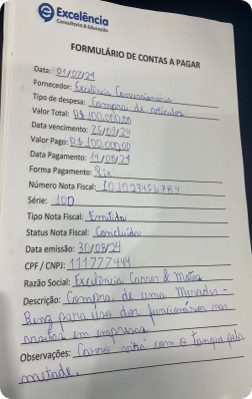 Excelência
Consultoria & Educação
FORMULÁRIO DE CONTAS A PAGAR
Data: 01/07/24
Fornecedor: Excelência Concessionária
Tipo de despesa: Compra de veículos
Valor Total: R$ 100.000,00
Data vencimento: 25/09/24
Valor Pago: R$ 100.000,00
Data Pagamento: 14/09/24
Forma Pagamento: Pix
Número Nota Fiscal: 10.1023456789
Série: 100
Tipo Nota Fiscal: Emitida
Status Nota Fiscal: Concluída
Data emissão: 30/09/24
CPF / CNPJ: 111777444
Razão Social: Excelência Carros & Motos
Descrição: Compra de uma Mercedes-
Benz para uso dos funcionários nas
em empresas.
Observações: Carro virá com o tanque pela
metade.